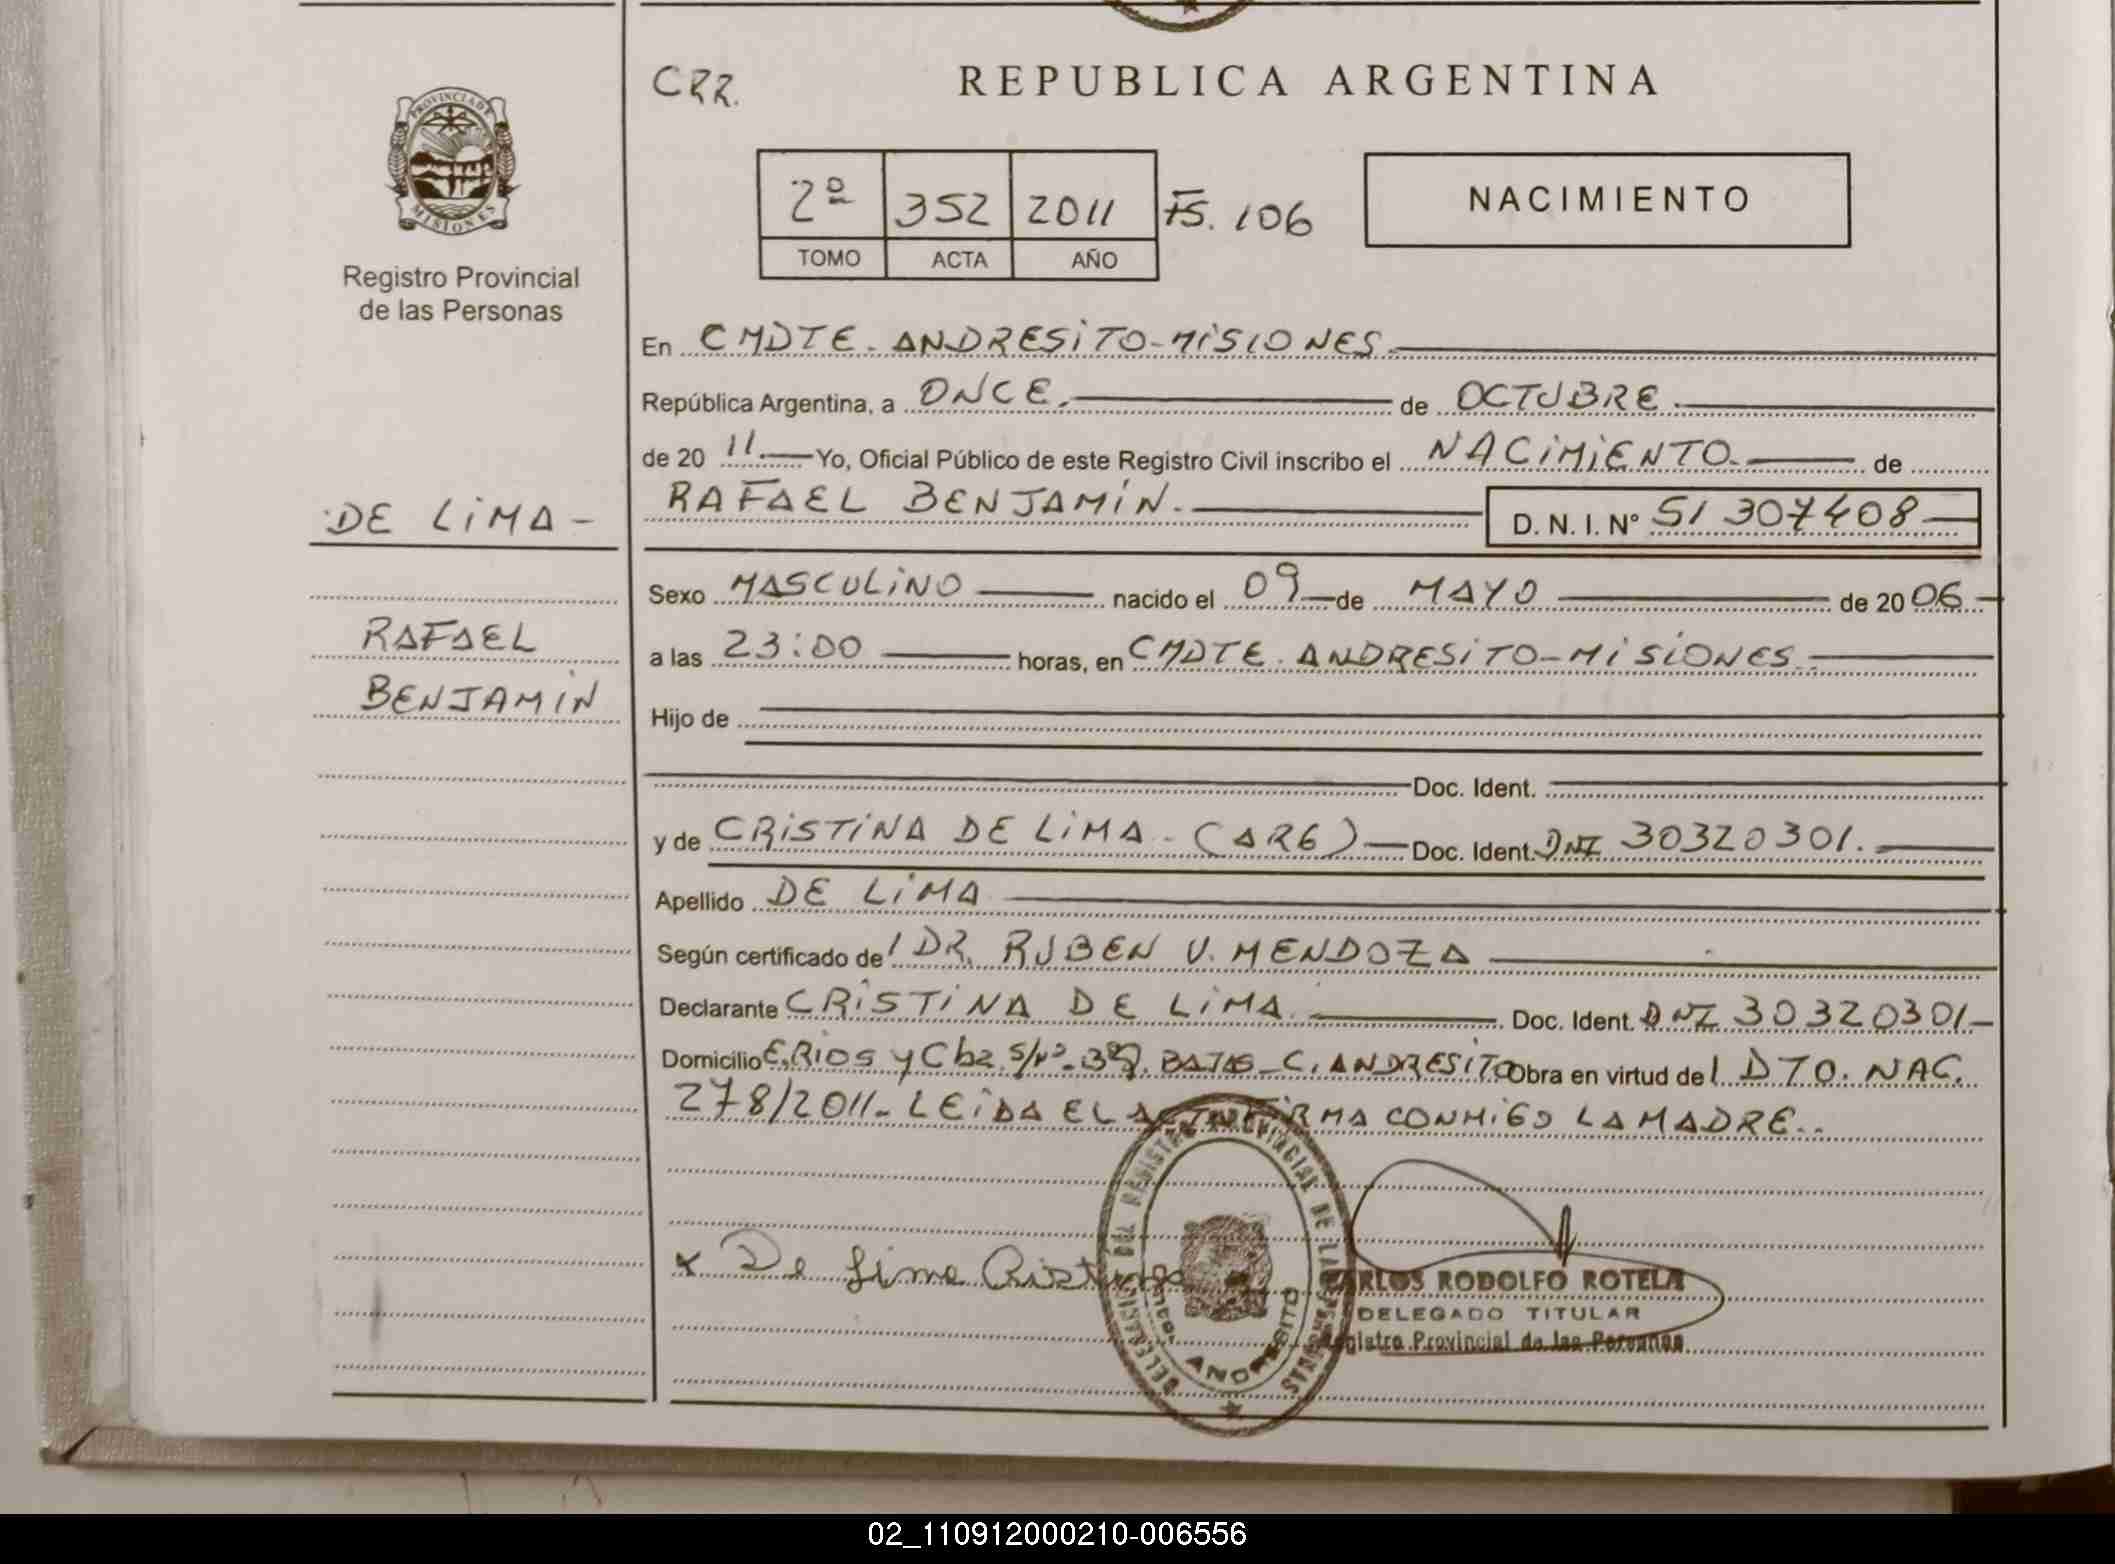 PROVINCIA DE
MISIONES
Registro Provincial
de las Personas
DE LIMA -
RAFAEL
BENJAMIN
CRR.
REPUBLICA ARGENTINA
2º 352 2011 FS. 106
TOMO ACTA AÑO
NACIMIENTO
En CMDTE. ANDRESITO-MISIONES.
República Argentina, a ONCE. de OCTUBRE.
de 20 11. Yo, Oficial Público de este Registro Civil inscribo el NACIMIENTO. de
RAFAEL BENJAMIN. D. N. I. Nº 51 307408
Sexo MASCULINO nacido el 09 de MAYO de 2006
a las 23:00 horas, en CMDTE. ANDRESITO-MISIONES.
Hijo de
Doc. Ident.
y de CRISTINA DE LIMA - (ARG) Doc. Ident. DNI 30320301.
Apellido DE LIMA
Según certificado de/ DR. RUBEN V. MENDOZA
Declarante CRISTINA DE LIMA. Doc. Ident. DNI 30320301-
Domicilio E. RIOS y Cba. S/Nº - C. ANDRESITO Obra en virtud del DTO. NAC.
278/2011- LEIDA EL ACTA FIRMA CONMIGO LA MADRE.
x De Lima Cristina
DELEGACION DEL REGISTRO PROVINCIAL DE LAS PERSONAS
CDTE. ANDRESITO
CARLOS RODOLFO ROTELA
DELEGADO TITULAR
Registro Provincial de las Personas
02_110912000210-006556